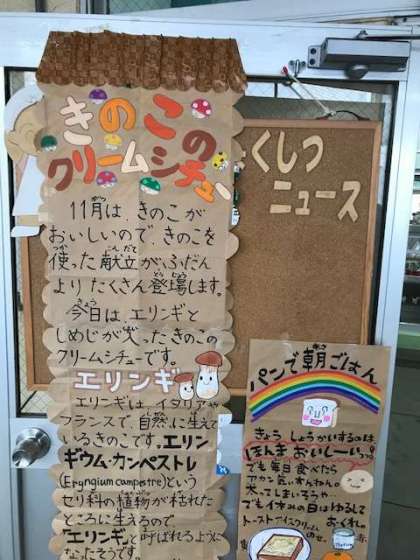 きのこの
クリームシチュー
11月は、きのこが
おいしいので、きのこを
使った献立が、ふだん
よりたくさん登場します。
今日は、エリンギと
しめじが入ったきのこの
クリームシチューです。
エリンギ
エリンギは、イタリアや
フランスで、自然に生えて
いるきのこです。エリン
ギウム・カンペストレ
(Eryngium campestre)という
セリ科の植物が枯れた
ところに生えるので
「エリンギ」と呼ばれるように
なったそうです。
くしつ
ニュース
パンで朝ごはん
きょうしょうかいするのは
ほんまおいしーいっっ
でも毎日食べたら
アカン
太ってしまいろうや…
でも休みの日はゆるして
トースト
アイスクリーム
のせ。